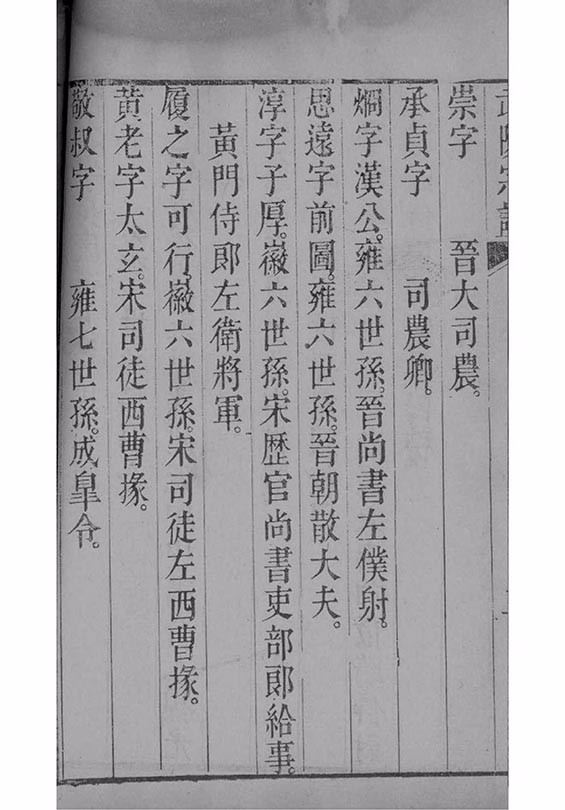 崇字　晉大司農。
承貞字　司農卿。
烱字漢公。雍六世孫。晉尚書左僕射。
思遠字前圖。雍六世孫。晉朝散大夫。
淳字子厚。徽六世孫。宋歷官尚書吏部郎給事。
黃門侍郎左衛將軍。
履之字可行。徽六世孫。宋司徒左西曹掾。
黃老字太玄。宋司徒西曹掾。
敬叔字　雍七世孫。成臯令。